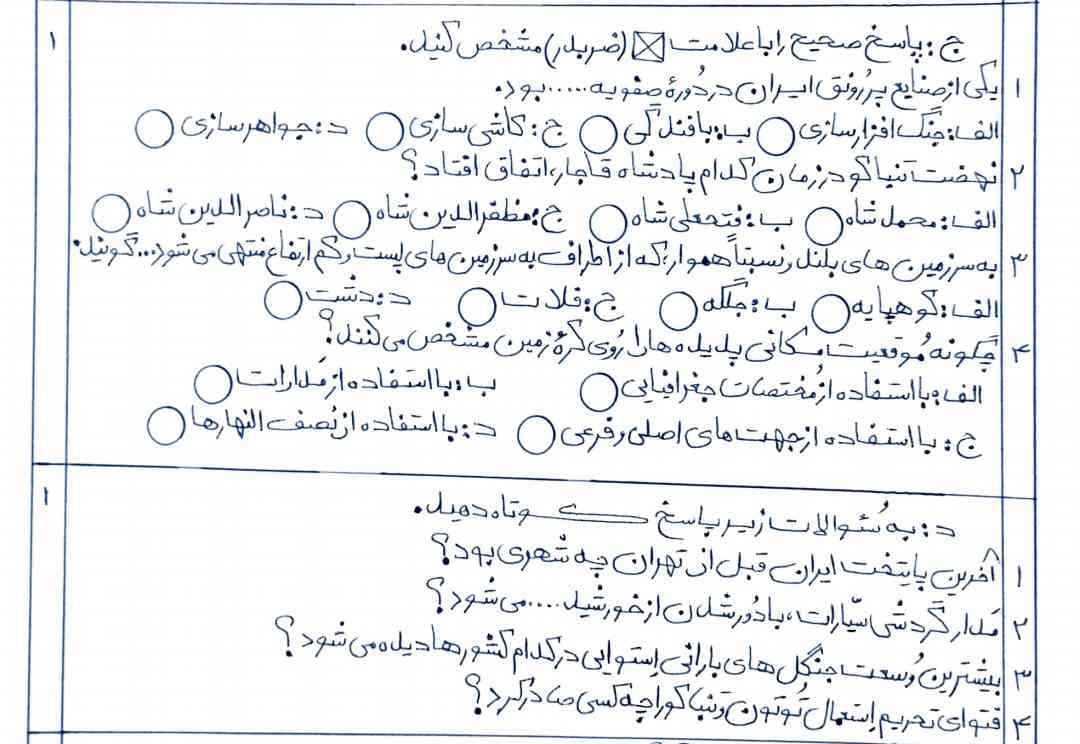 ج: پاسخ صحیح را با علامت ☒ (ضربدر) مشخص کنید. ۱
۱ یکی از صنایع پر رُونق ایران در دُورهٔ صفویه ..... بود.
الف: جنگ افزار سازی ○ ب: بافندگی ○ ج: کاشی سازی ○ د: جواهر سازی ○
۲ نهضت تنباکو در زمان کدام پادشاه قاجار، اتفاق افتاد؟
الف: محمد شاه ○ ب: فتحعلی شاه ○ ج: مظفرالدین شاه ○ د: ناصرالدین شاه ○
۳ به سرزمین های بلند و نسبتاً هموار، که از اطراف به سرزمین های پست و کم ارتفاع منتهی می شود ... گویند.
الف: کوهپایه ○ ب: جلگه ○ ج: فلات ○ د: دشت ○
۴ چگونه مُوقعیت مکانی پدیده ها را رُوی کرهٔ زمین مشخص می کنند؟
الف: با استفاده از مُختصات جغرافیایی ○ ب: با استفاده از مَدارات ○
ج: با استفاده از جهت های اصلی و فرعی ○ د: با استفاده از نُصف النهارها ○
د: به سُئوالات زیر پاسخ کوتاه دهید. ۱
۱ آخرین پایتخت ایران قبل از تهران چه شهری بود؟
۲ مَدار گردشی سیّارات، با دُور شدن از خورشید ..... می شود؟
۳ بیشترین وُسعت جنگل های بارانی اِستوایی در کدام کشورها دیده می شود؟
۴ فتوای تحریم اِستعمال تُوتون و تنباکو را چه کسی صادر کرد؟